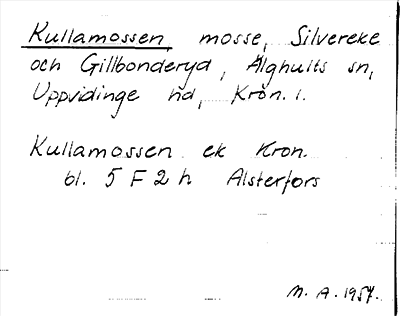 Kullamossen, mosse, Silvereke
och Gillbonderyd, Älghults sn,
Uppvidinge hd, Kron. l.
Kullamossen ek Kron.
bl. 5 F 2 h Alsterfors
M. A. 1957.